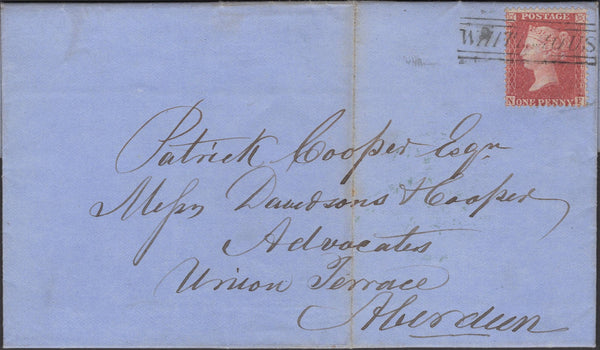 POSTAGE
WHITEHOUS
N E
ONE PENNY
Patrick Cooper Esqr
Messrs Davidsons & Cooper
Advocates
Union Terrace
Aberdeen